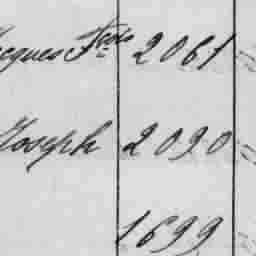 Jacques Fçois 2061
Joseph 2090
1699